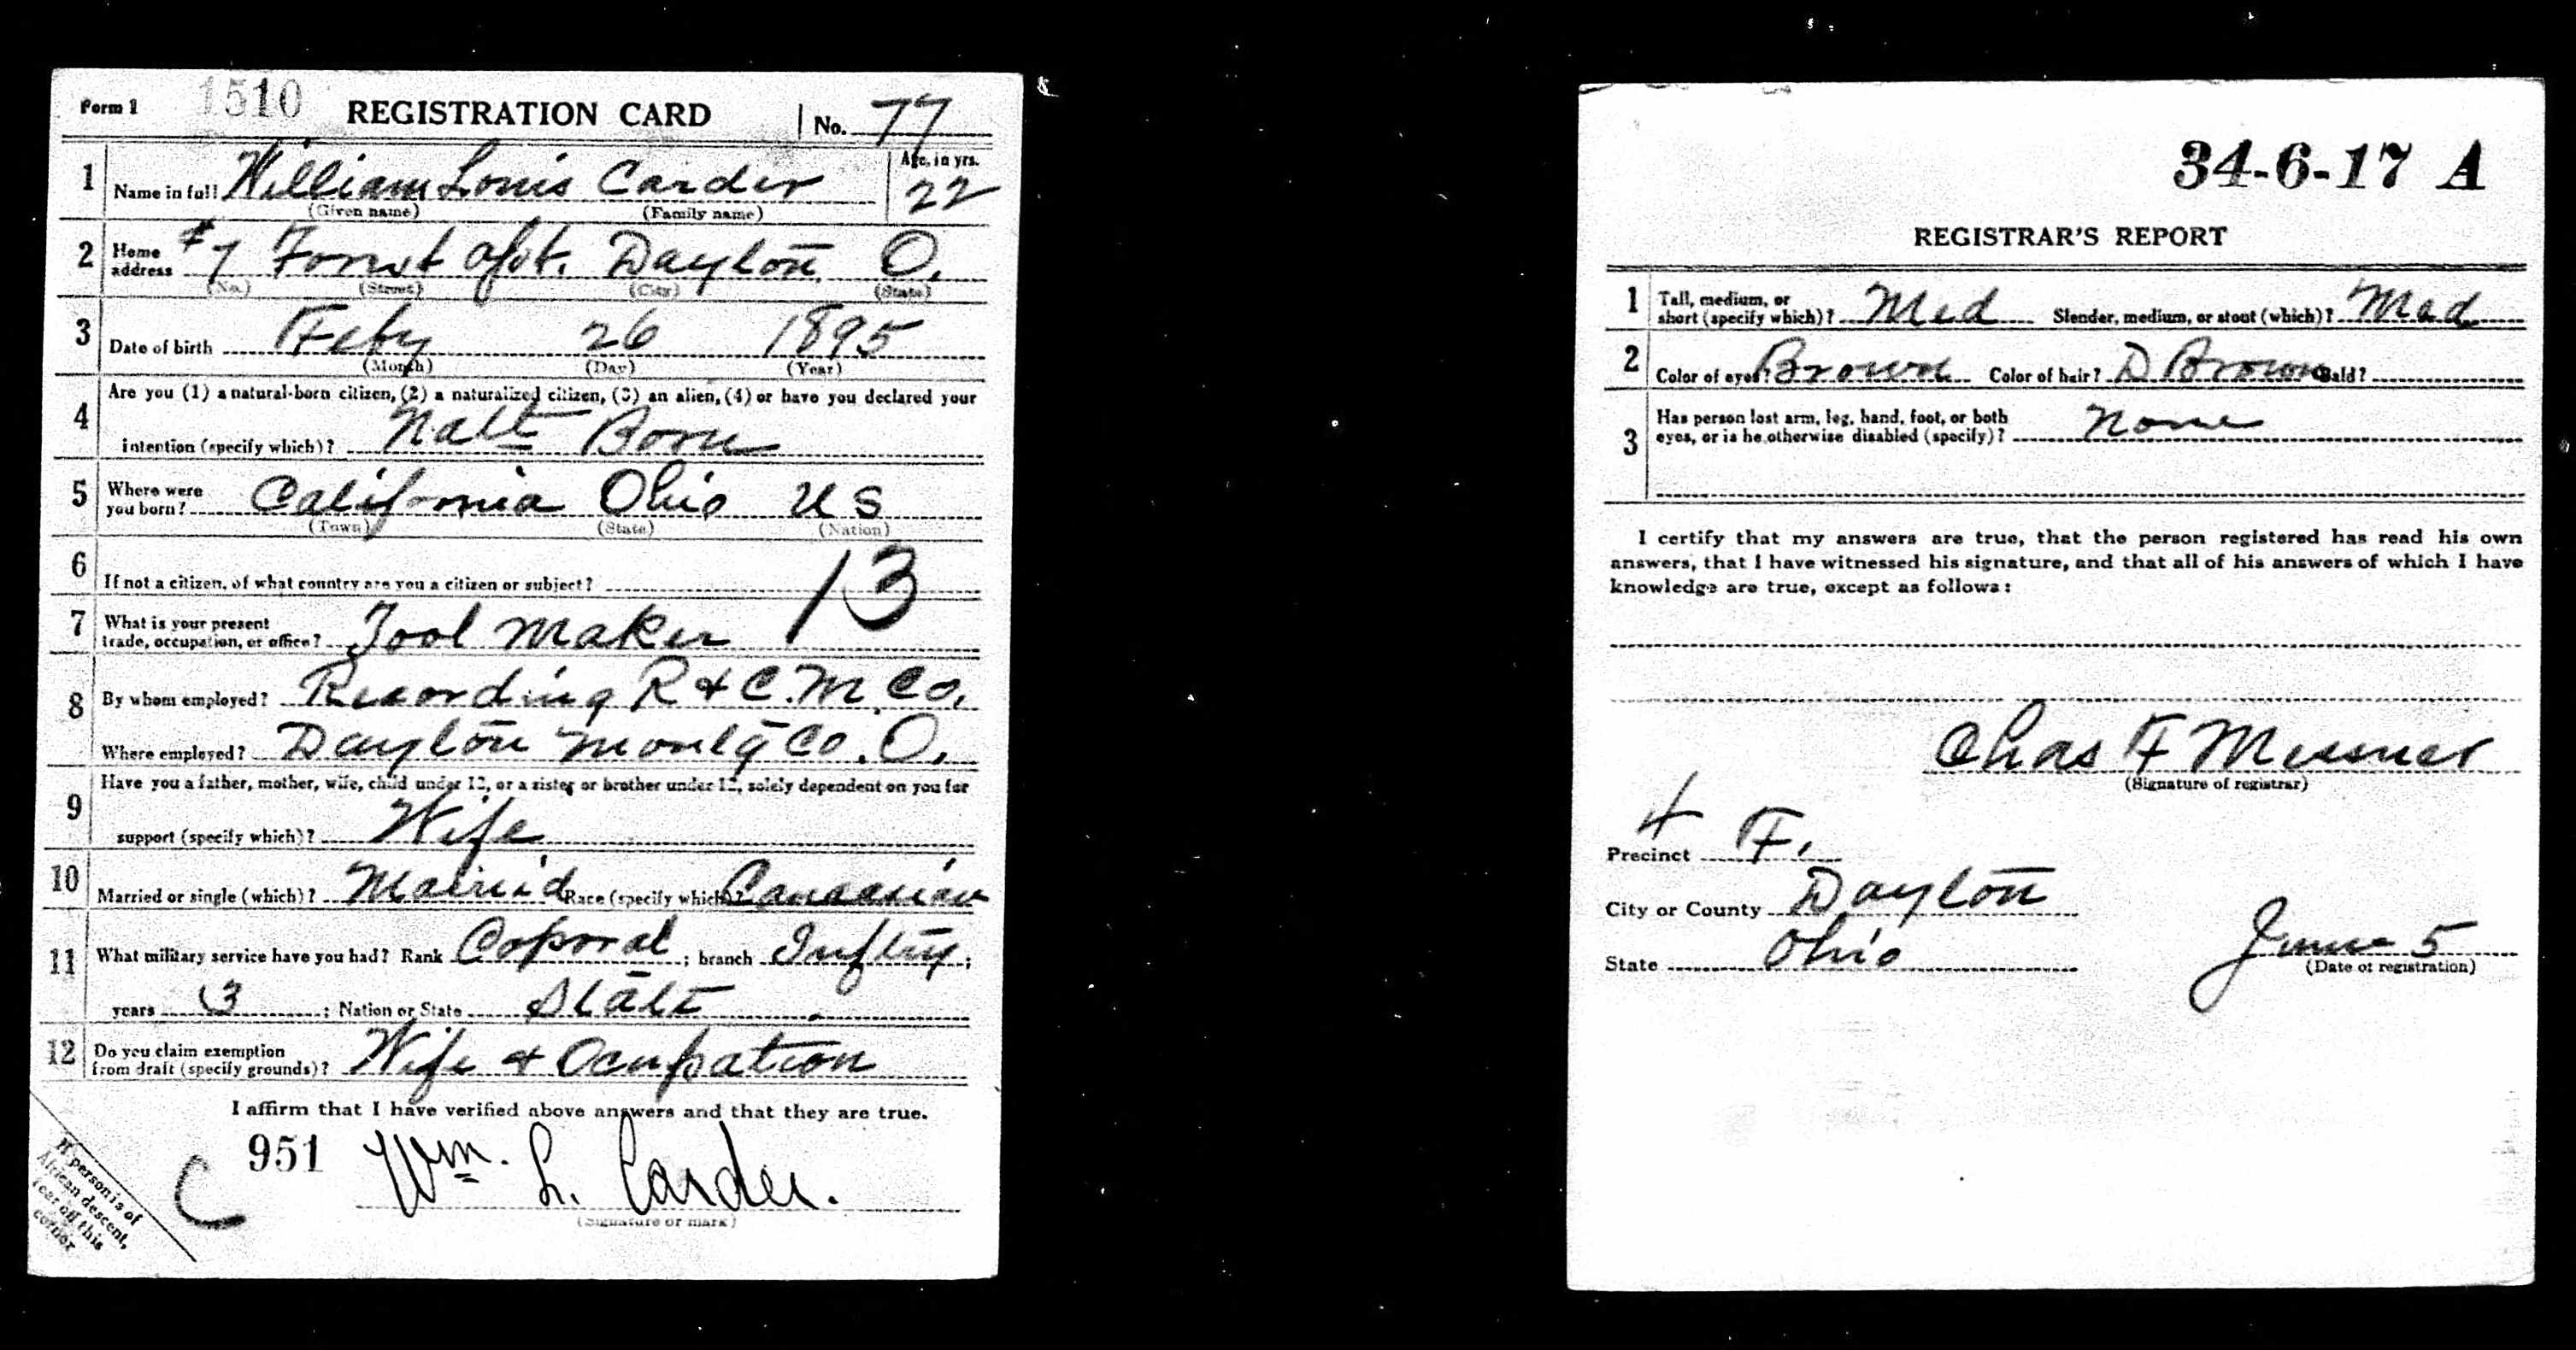 Form 1 1510 REGISTRATION CARD No. 77
1 Name in full William Louis Carder Age, in yrs. 22
(Given name) (Family name)
2 Home address #7 Forest Apt. Dayton O.
(No.) (Street) (City) (State)
3 Date of birth Feby 26 1895
(Month) (Day) (Year)
4 Are you (1) a natural-born citizen, (2) a naturalized citizen, (3) an alien, (4) or have you declared your
intention (specify which)? Natl Born
5 Where were you born? California Ohio US
(Town) (State) (Nation)
6 If not a citizen, of what country are you a citizen or subject?
13
7 What is your present trade, occupation, or office? Tool Maker
8 By whom employed? Recording R & C. M. Co.
Where employed? Dayton Montg Co. O.
9 Have you a father, mother, wife, child under 12, or a sister or brother under 12, solely dependent on you for
support (specify which)? Wife
10 Married or single (which)? Married Race (specify which)? Caucasian
11 What military service have you had? Rank Coporal ; branch Inftry ;
years 3 ; Nation or State State
12 Do you claim exemption from draft (specify grounds)? Wife & Ocupation
I affirm that I have verified above answers and that they are true.
951 C Wm. L. Carder.
(Signature or mark)
If person is of
African descent,
tear off this
corner
34-6-17 A
REGISTRAR'S REPORT
1 Tall, medium, or short (specify which)? Med Slender, medium, or stout (which)? Med
2 Color of eyes? Brown Color of hair? D Brown Bald?
3 Has person lost arm, leg, hand, foot, or both
eyes, or is he otherwise disabled (specify)? None
I certify that my answers are true, that the person registered has read his own
answers, that I have witnessed his signature, and that all of his answers of which I have
knowledge are true, except as follows:
Chas F Messner
(Signature of registrar)
4
Precinct F.
City or County Dayton
State Ohio June 5
(Date of registration)